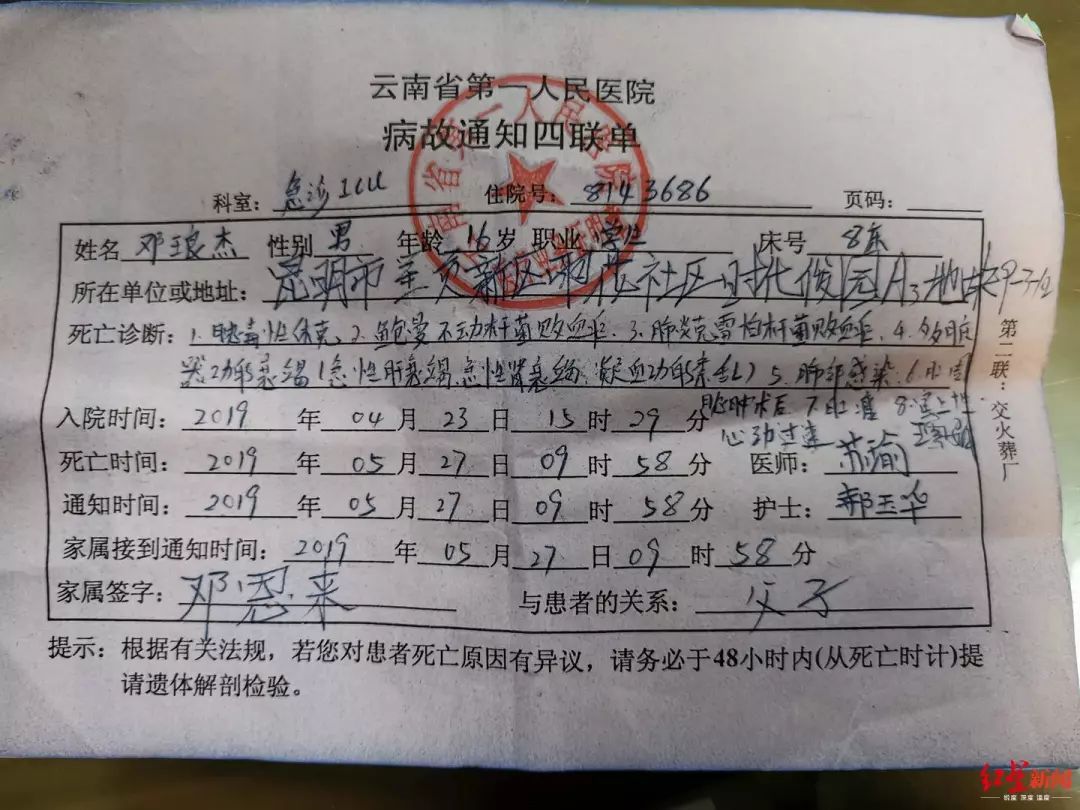 云南省第一人民医院
病故通知四联单
科室: 急诊ICU 住院号: 8143686 页码:
姓名 邓琅杰 性别 男 年龄 16岁 职业 学生 床号 8床
所在单位或地址: 昆明市呈贡新区 社区 俊园A3地块
死亡诊断: 1.脓毒性休克 2.鲍曼不动杆菌败血症 3.肺炎克雷伯杆菌败血症 4.多脏
器功能衰竭(急性肝衰竭,急性肾衰竭,凝血功能紊乱) 5.肺部感染 6.胆囊
肿术后 8.室上性
心动过速
入院时间: 2019 年 04 月 23 日 15 时 29 分
死亡时间: 2019 年 05 月 27 日 09 时 58 分 医师: 苏瑜
通知时间: 2019 年 05 月 27 日 09 时 58 分 护士: 郝玉华
家属接到通知时间: 2019 年 05 月 27 日 09 时 58 分
家属签字: 邓恩来 与患者的关系: 父子
提示: 根据有关法规，若您对患者死亡原因有异议，请务必于48小时内(从死亡时计)提
请遗体解剖检验。
第二联：交火葬厂
红星新闻